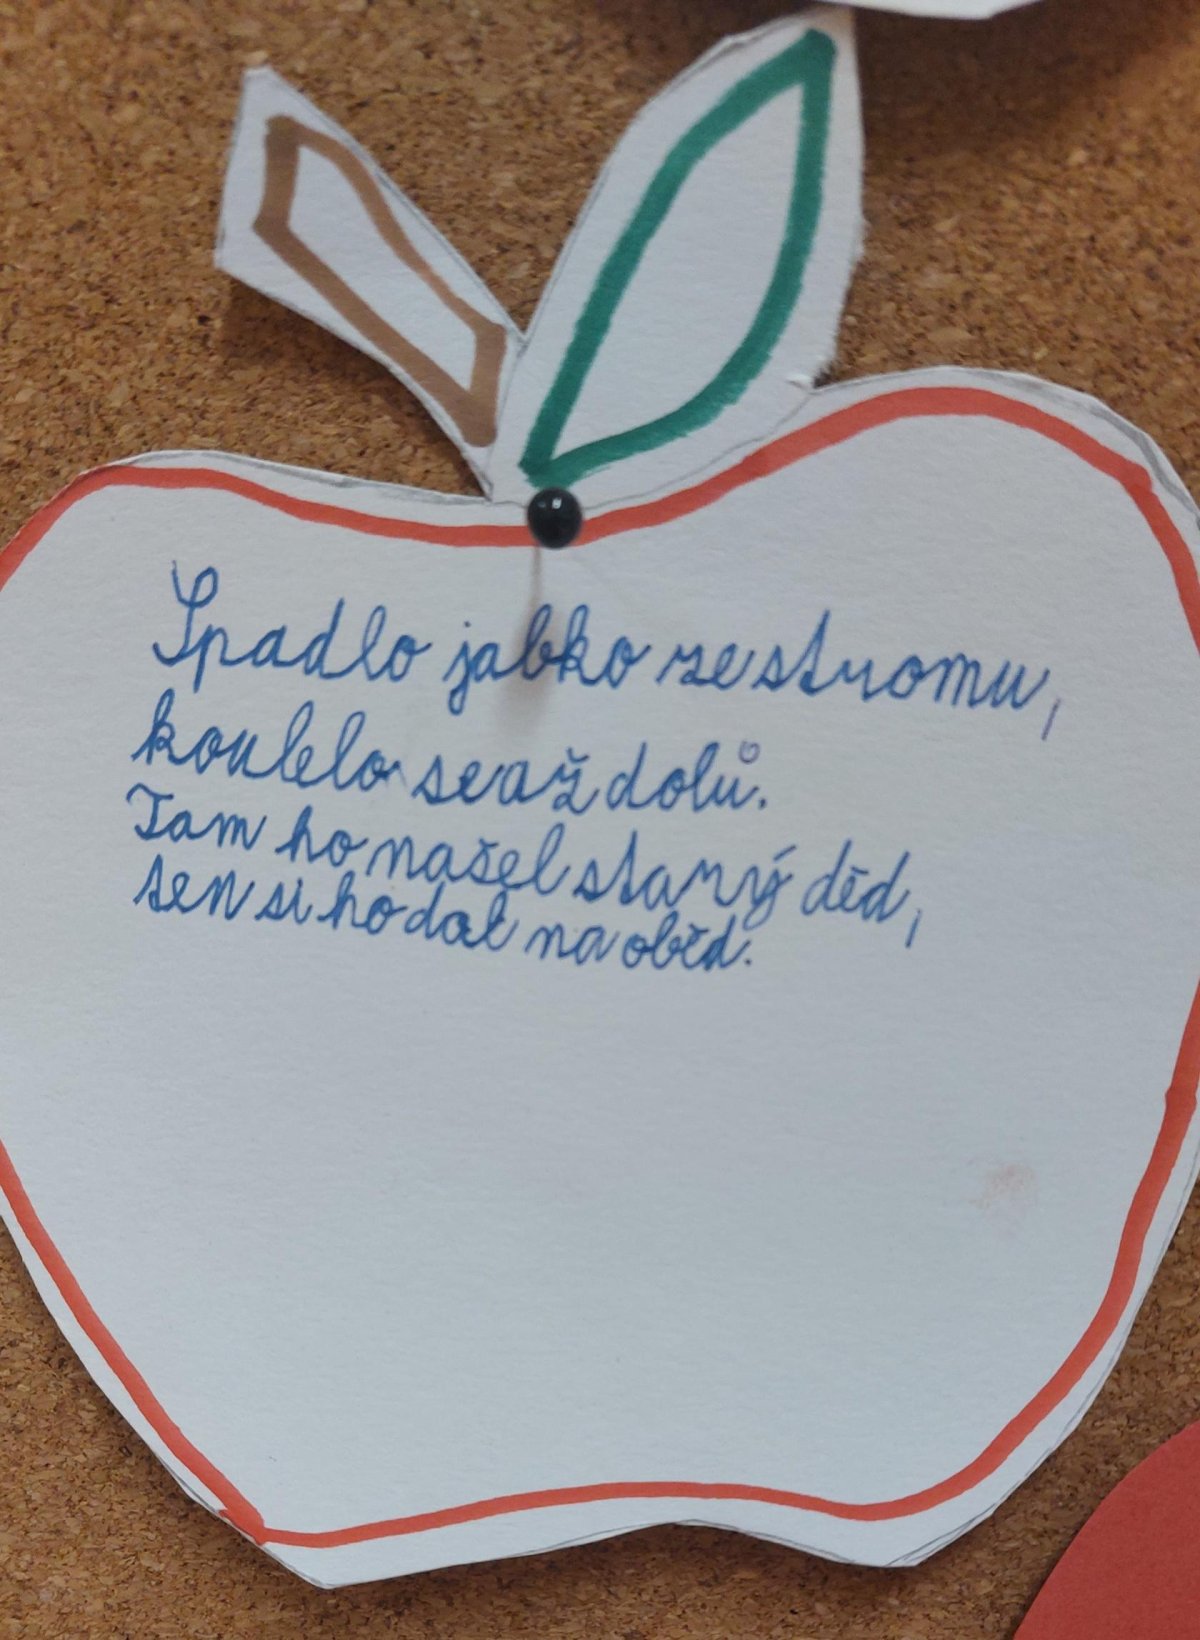 Spadlo jabko ze stromu,
koulelo se až dolů.
Tam ho našel starý děd,
ten si ho dal na oběd.